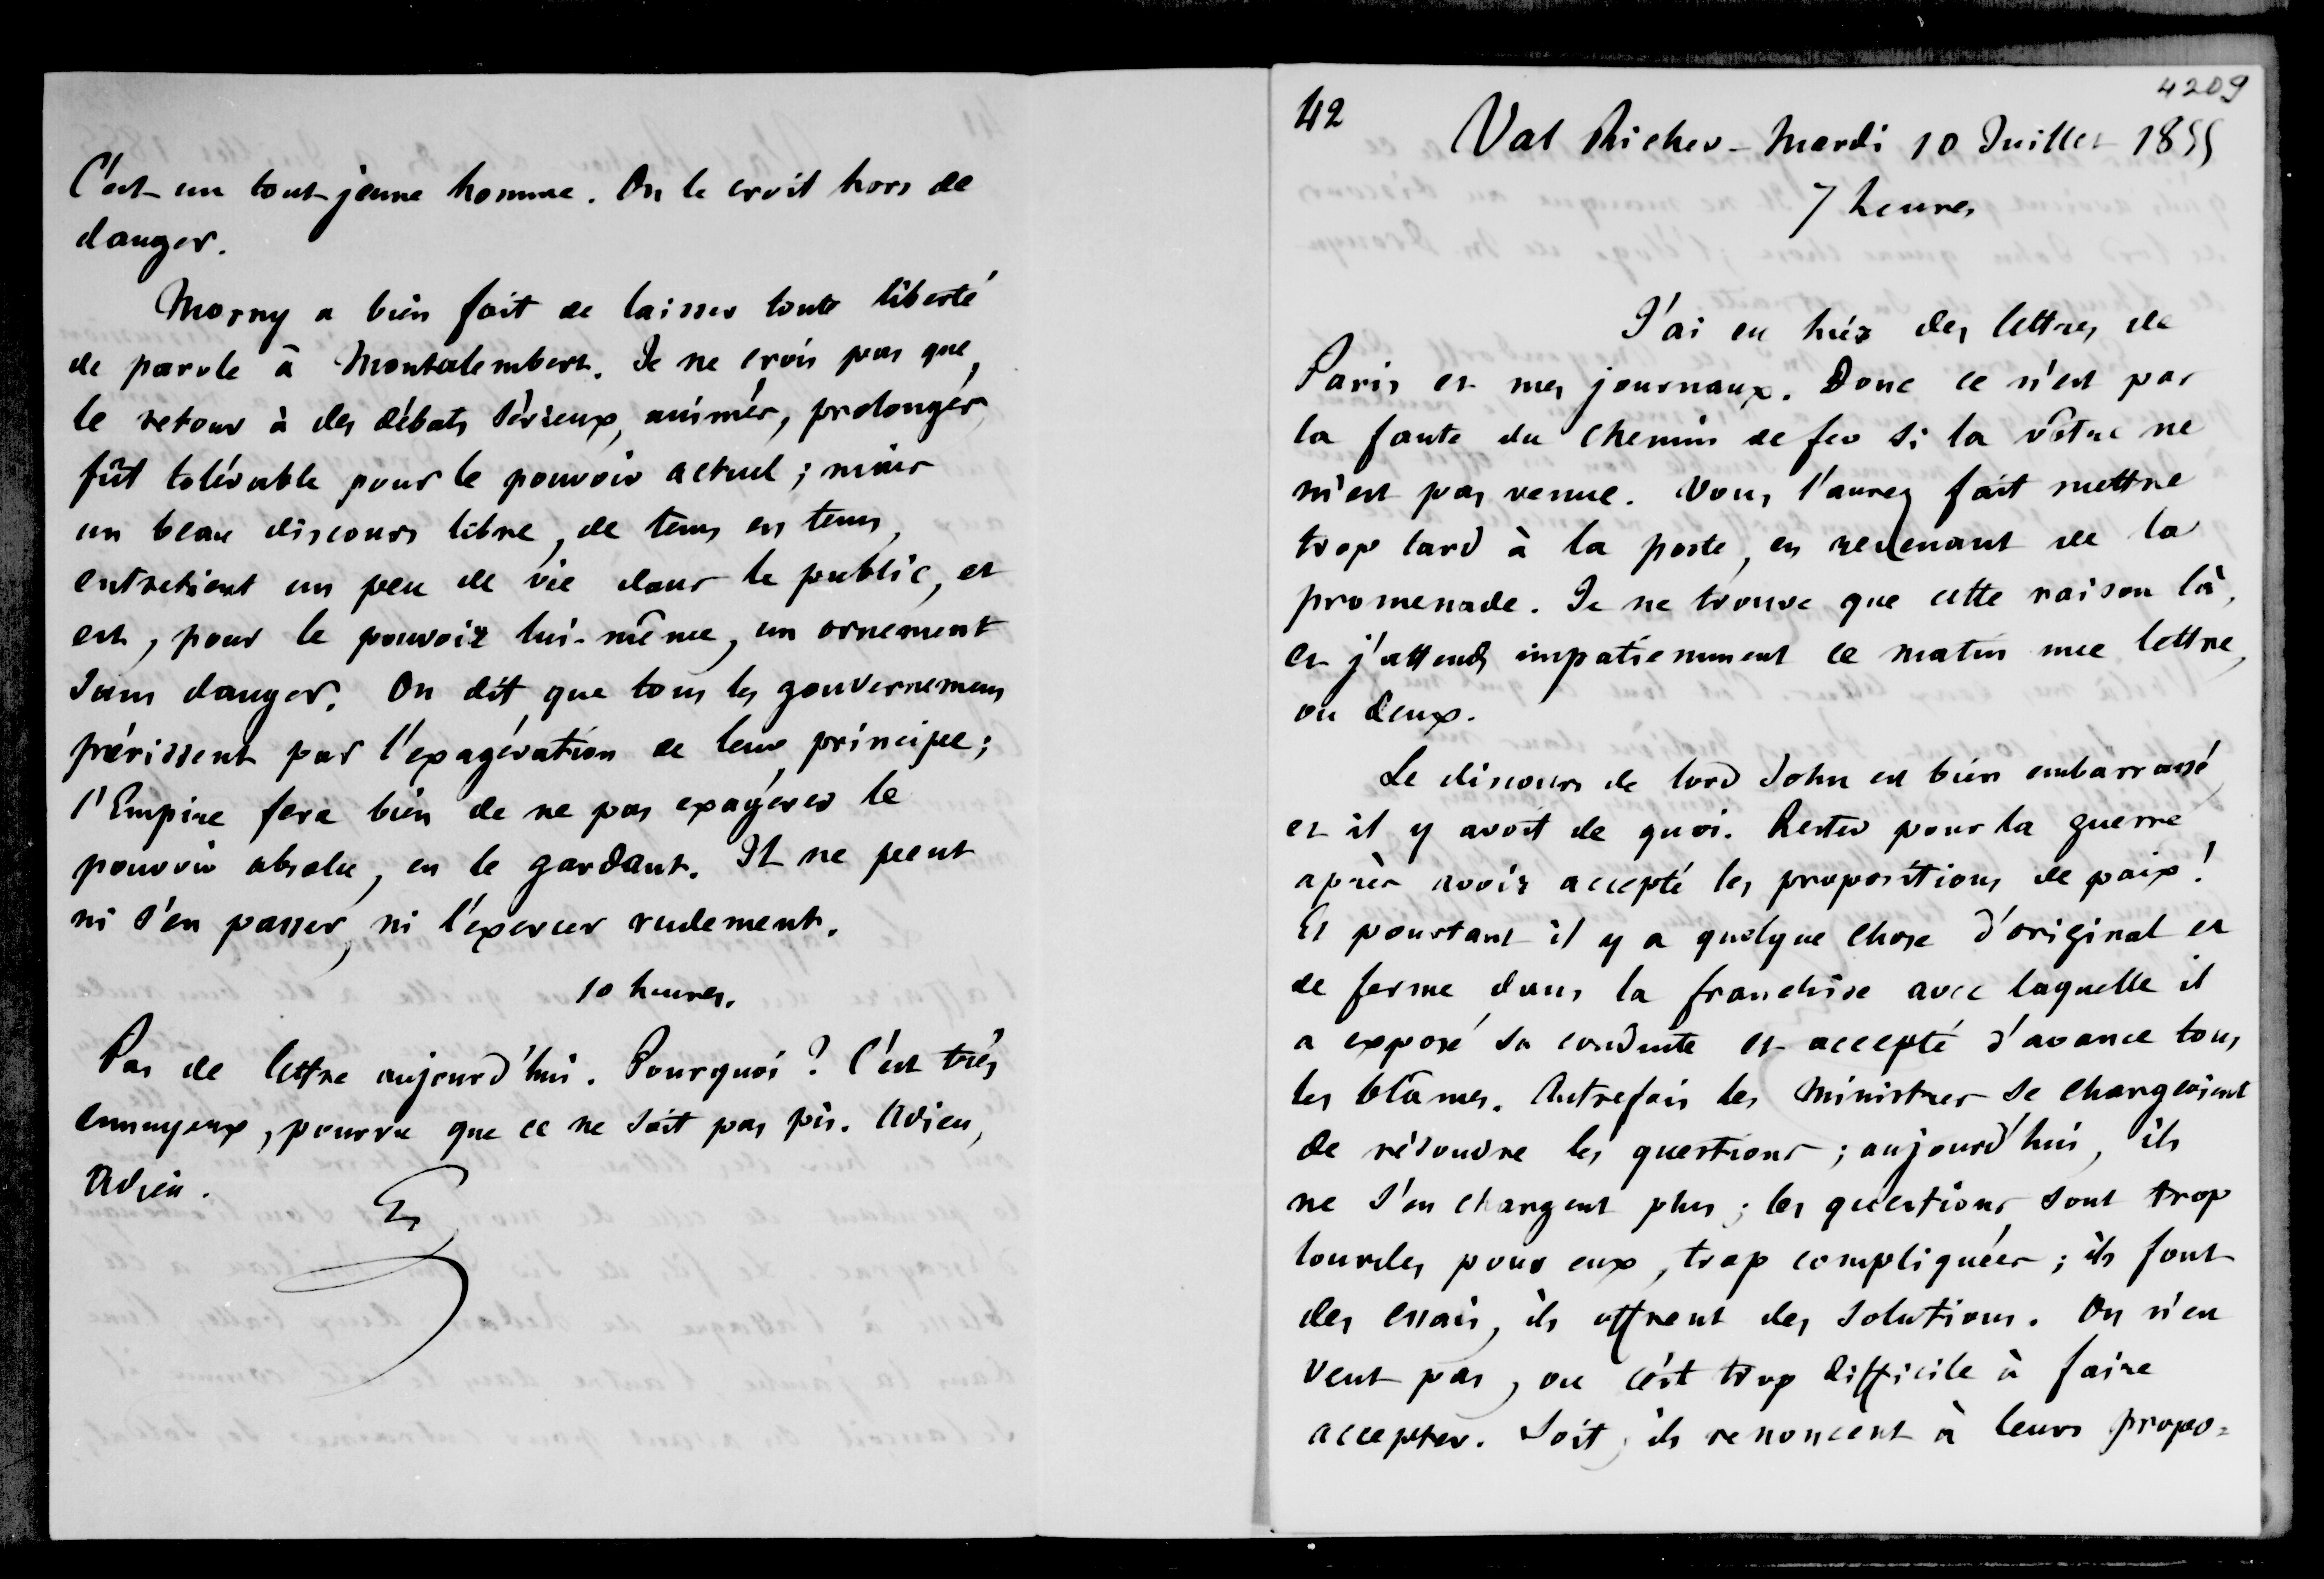 C'est un tout jeune homme. On le croit hors de
danger.
Morny a bien fait de laisser toute liberté
de parole à Montalembert. Je ne crois pas que,
le retour à des débats sérieux, animés, prolongés,
fût tolérable pour le pouvoir actuel ; mais
un beau discours libre, de tems en tems,
entretient un peu de vie dans le public, et
est, pour le pouvoir lui-même, un ornement
sans danger. On dit que tous les gouvernemens
périssent par l'exagération de leur principe ;
l'Empire fera bien de ne pas exagérer le
pouvoir absolu, en le gardant. Il ne peut
ni s'en passer, ni l'exercer rudement.
10 heures.
Pas de lettre aujourd'hui. Pourquoi ? C'est très
ennuyeux, pourvu que ce ne soit pas pis. Adieu,
Adieu.
42
4209
Val Richer - Mardi 10 Juillet 1855
7 heures
J'ai eu hier des lettres de
Paris et mes journaux. Donc ce n'est pas
la faute du chemin de fer si la vôtre ne
m'est pas venue. Vous l'aurez fait mettre
trop tard à la poste, en revenant de la
promenade. Je ne trouve que cette raison là,
et j'attends impatiemment ce matin une lettre,
ou deux.
Le discours de lord John est bien embarrassé,
et il y avoit de quoi. Rester pour la guerre
après avoir accepté les propositions de paix !
Et pourtant il y a quelque chose d'original et
de ferme dans la franchise avec laquelle il
a exposé sa conduite et accepté d'avance tous
les blâmes. Autrefois les Ministres se chargeoient
de résoudre les questions ; aujourd'hui, ils
ne s'en chargent plus ; les questions sont trop
lourdes pour eux, trop compliquées ; ils font
des essais, ils offrent des solutions. On n'en
veut pas, ou c'est trop difficile à faire
accepter. Soit ; ils renoncent à leurs propo=